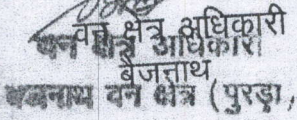 वन क्षेत्र अधिकारी
वन क्षेत्र अधिकारी
बैजनाथ
बैजनाथ वन क्षेत्र (पुरड़ा,